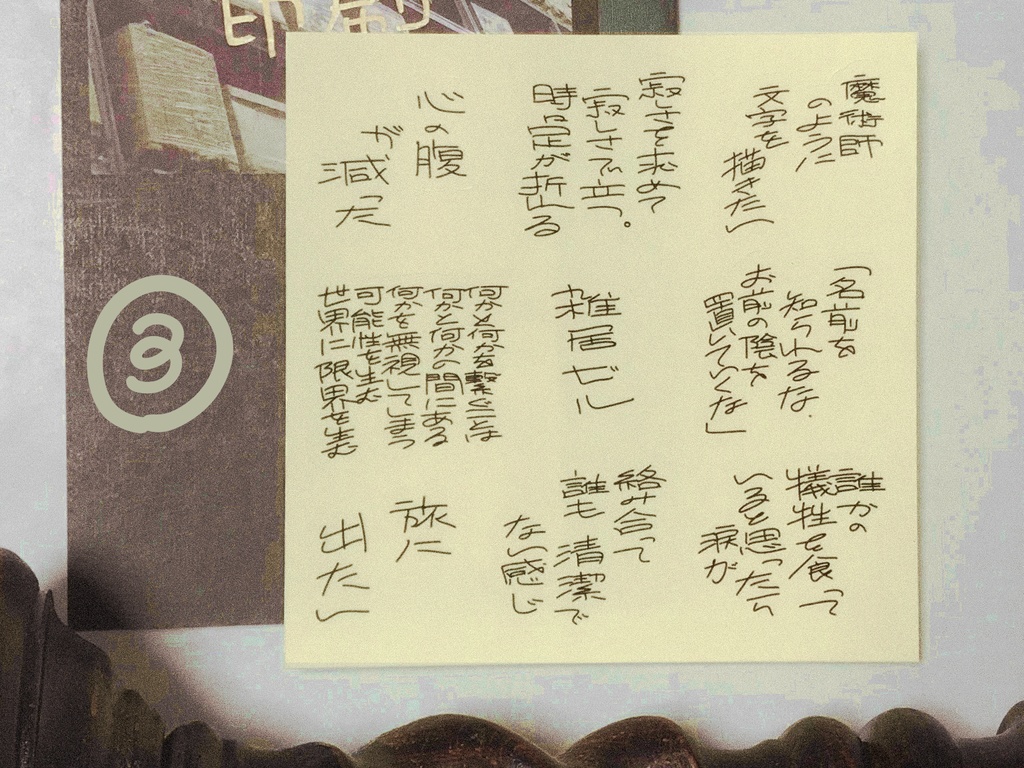 印刷
魔術師
のように
文字を
描きたい
寂しさを求めて
寂しさで立つ。
時に足が折れる
心の腹
が
減った
「名前を
知られるな.
お前の陰を
置いていくな」
雑居ビル
何かと何かを繋ぐことは
何かと何かの間にある
何かを無視してしまう
可能性を生む
世界に限界を生む
誰かの
犠牲を食って
いると思ったら
涙が
絡み合って
誰も清潔で
ない感じ
旅に
出たい
3